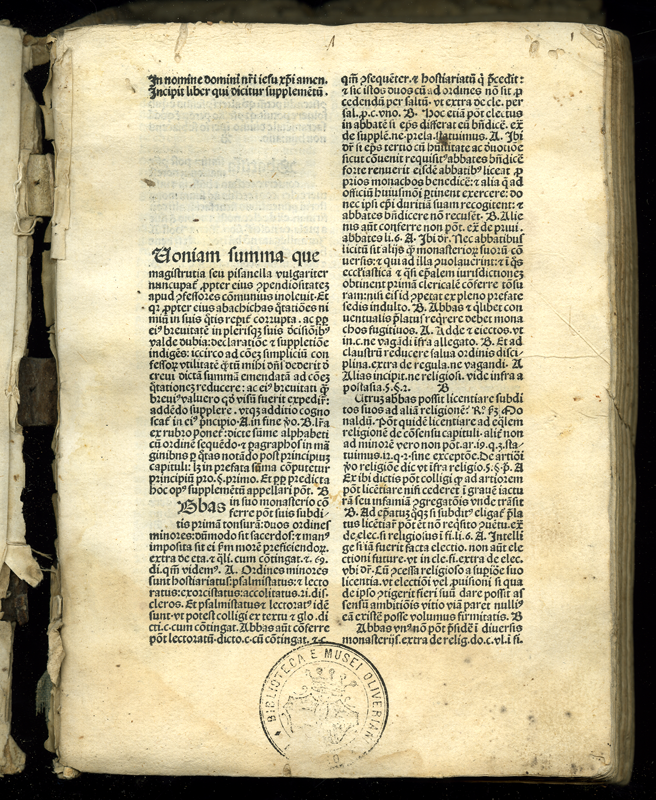 In nomine domini nr̃i iesu xp̃i amen.
Incipit liber qui dicitur supplementũ.
Uoniam summa que
magistrutia seu pisanella vulgariter
nuncupat̃ ꝓpter eius ꝯpendiositatez
apud ꝯfessores cõmunius inoleuit. Et
qꝛ ꝓpter eius abachichas q̃tatiões ni
miũ in suis q̃tis repit̃ corrupta. ac ꝓp̱
ei⁹ breuitatẽ in plerisqꝫ suis dcisiõibꝰ
valde dubia: declaratiõe ⁊ suppletiõe
indigẽs: iccirco ad cõez simpliciũ con
fessoꝝ vtilitatẽ q̃tũ mihi dñs dederit d̃
creui dictã summã emendatã ad cõez
q̃tationez reducere: ac ei⁹ breuitati q̃
breui⁹ valuero qđ visũ fuerit expedir̃:
addẽdo supplere. vtqꝫ additio cogno
scat̃ in ei⁹ pncipio .A. in fine ṽo .B. lr̃a
ex rubro ponet̃: dicte sũme alphabeti
cũ ordinẽ sequẽdo: ⁊ pagraphos in mã
ginibns p q̃tas notãdo post principiuz
capituli: lꝫ in prefata sũma cõputetur
principiũ pro .§. primo. Et ꝓp̱ predicta
hoc op⁹ supplementũ appellari põt. B
Bbas in suo monasterio cõ
ferre põt suis subdi
tis primã tonsurã: duos ordines
minores: dũmodo sit sacerdos: ⁊ man⁹
imposita sit ei s̃m morẽ preficiendoꝝ.
extra de eta. ⁊ q̃li. cum cõtingat. ⁊ .69.
di. qm̃ videm⁹. A. Ordines minores
sunt hostiariatus: psalmistatus: ⁊ lecto
ratus: exorcistatus: accolitatus. 21. dis.
cleros. Et psalmistatus ⁊ lectorat⁹ idẽ
sunt. vt potest colligi ex textu ⁊ glo. di
cti. c. cum cõtingat. Abbas aũt cõferre
põt lectoratũ. dicto. c. cũ cõtingat. ⁊ c.
qm̃ ꝯsequẽter. ⁊ hostiariatũ q̃ p̃cedit:
⁊ sic istos duos cũ ad ordines nõ sit ꝓ
cedendũ per saltũ. vt extra de cle. per
sal. ꝓ. c. vno. B. Hoc etiã põt electus
in abbatẽ si ep̃s differat eũ bñdicẽ. ex̃
de supplẽ. ne. prela. statuimus. A. Ibi
dr̃ si ep̃s tertio cũ hũilitate ac duotiõe
sicut cõuenit requisit⁹ abbates bñdicẽ
forte renuerit eisdẽ abbatib⁹ liceat ꝓ
prios monachos benedicẽ: ⁊ alia q̃ ad
officiũ huiusmõi ptinent exercere: do
nec ipsi ep̃i duritiã suam recogitent: ⁊
abbates bñdicere nõ recusẽt. B. Alie
nis aũt conferre non põt. ex̃ de priui.
abbates li. 6. A. Ibi dr̃. Nec abbatibus
licitũ sit alijs q̃ monasterioꝝ suorũ cõ
uersis: ⁊ qui ad illa ꝯuolauerint: ⁊ ĩ q̃s
eccl̃iastica ⁊ q̃si ep̃alem iurisdictionez
obtinent primã clericalẽ cõferre tõsu
ram: nisi eis id ꝯpetat ex pleno prefate
sedis indulto. B. Abbas ⁊ q̃libet con
uentualis p̃latus req̃rere debet mona
chos fugitiuos. A. Adde ⁊ eiectos. vt
in. c. ne vagãdi ifra allegato. B. Et ad
claustrũ reducere salua ordinis disci-
plina. extra de regula. ne vagandi. A
Alias incipit. ne religiosi. vide infra a
postasia. §. §. 2. B
Utrus abbas possit licentiare subdi
tos suos ad aliã religionẽ? R̃⁰. p̱ꝫ Mo
naldũ. Põt quidẽ licentiare ad eq̃lem
religionẽ de cõsensu capituli. alit̃ non
ad minorẽ vero non põt. ar. 19. q. 3. sta-
tuimus. 12. q. 2. sine exceptõe. De artiõi
ṽo religiõe dic vt ifra religio. 5. §. p̃. A
Ex ibi dictis põt colligi q̃ ad artiorem
põt licẽtiare nisi cederet ĩ grauẽ iactu
rã seu infamiã ꝯgregatõis vnde trãsit
B. Ad ep̃atuz qꝫꝫ si subdit⁹ eligat̃ p̃la
tus licẽtiar̃ põt ẽt nõ req̃sito ꝯuẽtu. ex̃
de elec. si religiosus ĩ fi. li. 6. A. Intelli
ge si iã fuerit facta electio. non aũt ele
ctioni future. vt in cle. fi. extra de elec.
vbi dr̃. Cũ ꝯcessa religioso a supiõe suo
licentia. vt electiõi vel puisioni si qua
de ipso ꝯtigerit fieri suũ dare possit as
sensũ ambitiõis vitio viã paret nulli⁹
eã existẽ posse volumus firmitatis. B
Abbas vn⁹ nõ põt p̃sidẽ ĩ diuersis
monasterijs. extra de relig. do. c. vl. ĩ fi.
BIBLIOTECA E MUSEI OLIVERIANI